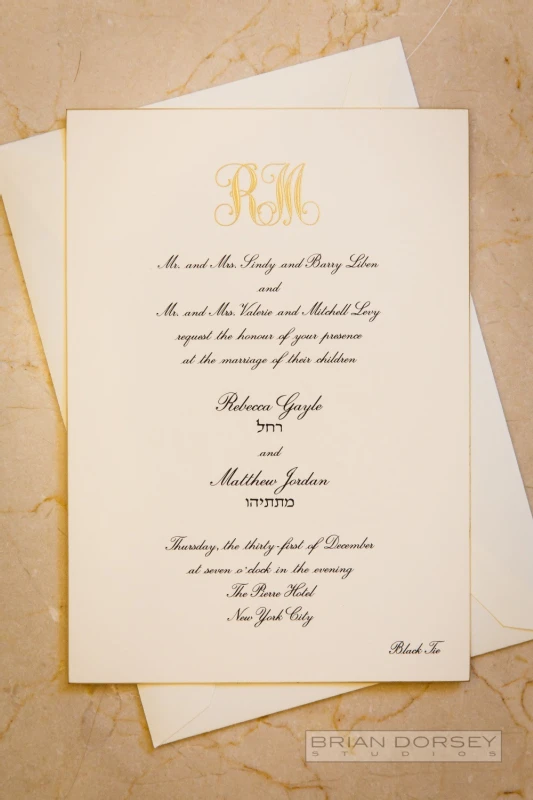 RM
Mr. and Mrs. Sindy and Barry Liben
and
Mr. and Mrs. Valerie and Mitchell Levy
request the honour of your presence
at the marriage of their children
Rebecca Gayle
רחל
and
Matthew Jordan
מתתיהו
Thursday, the thirty-first of December
at seven o'clock in the evening
The Pierre Hotel
New York City
Black Tie
BRIAN DORSEY
STUDIOS